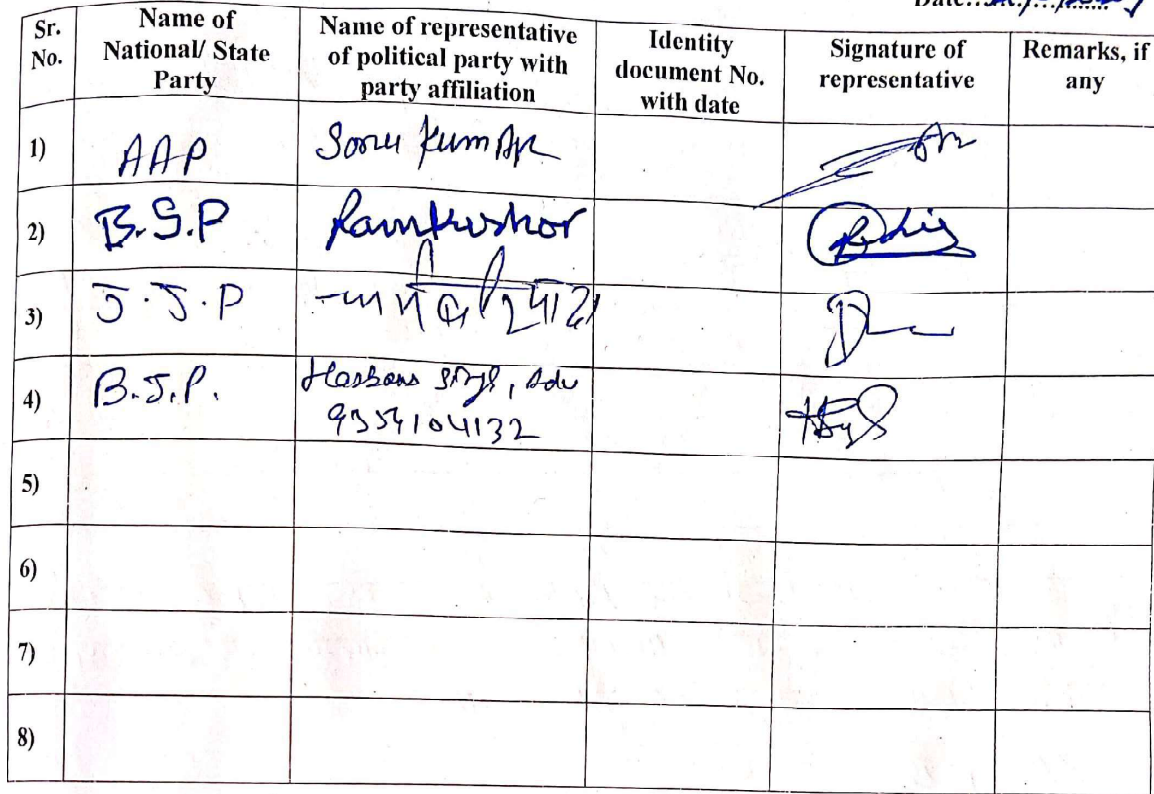 Date:
Sr. No. Name of National/ State Party Name of representative of political party with party affiliation Identity document No. with date Signature of representative Remarks, if any
1) AAP Sonu Kumar
2) B.S.P Ramkishor
3) J.J.P
4) B.J.P. Harbans Singh, Adv
9354104132
5)
6)
7)
8)